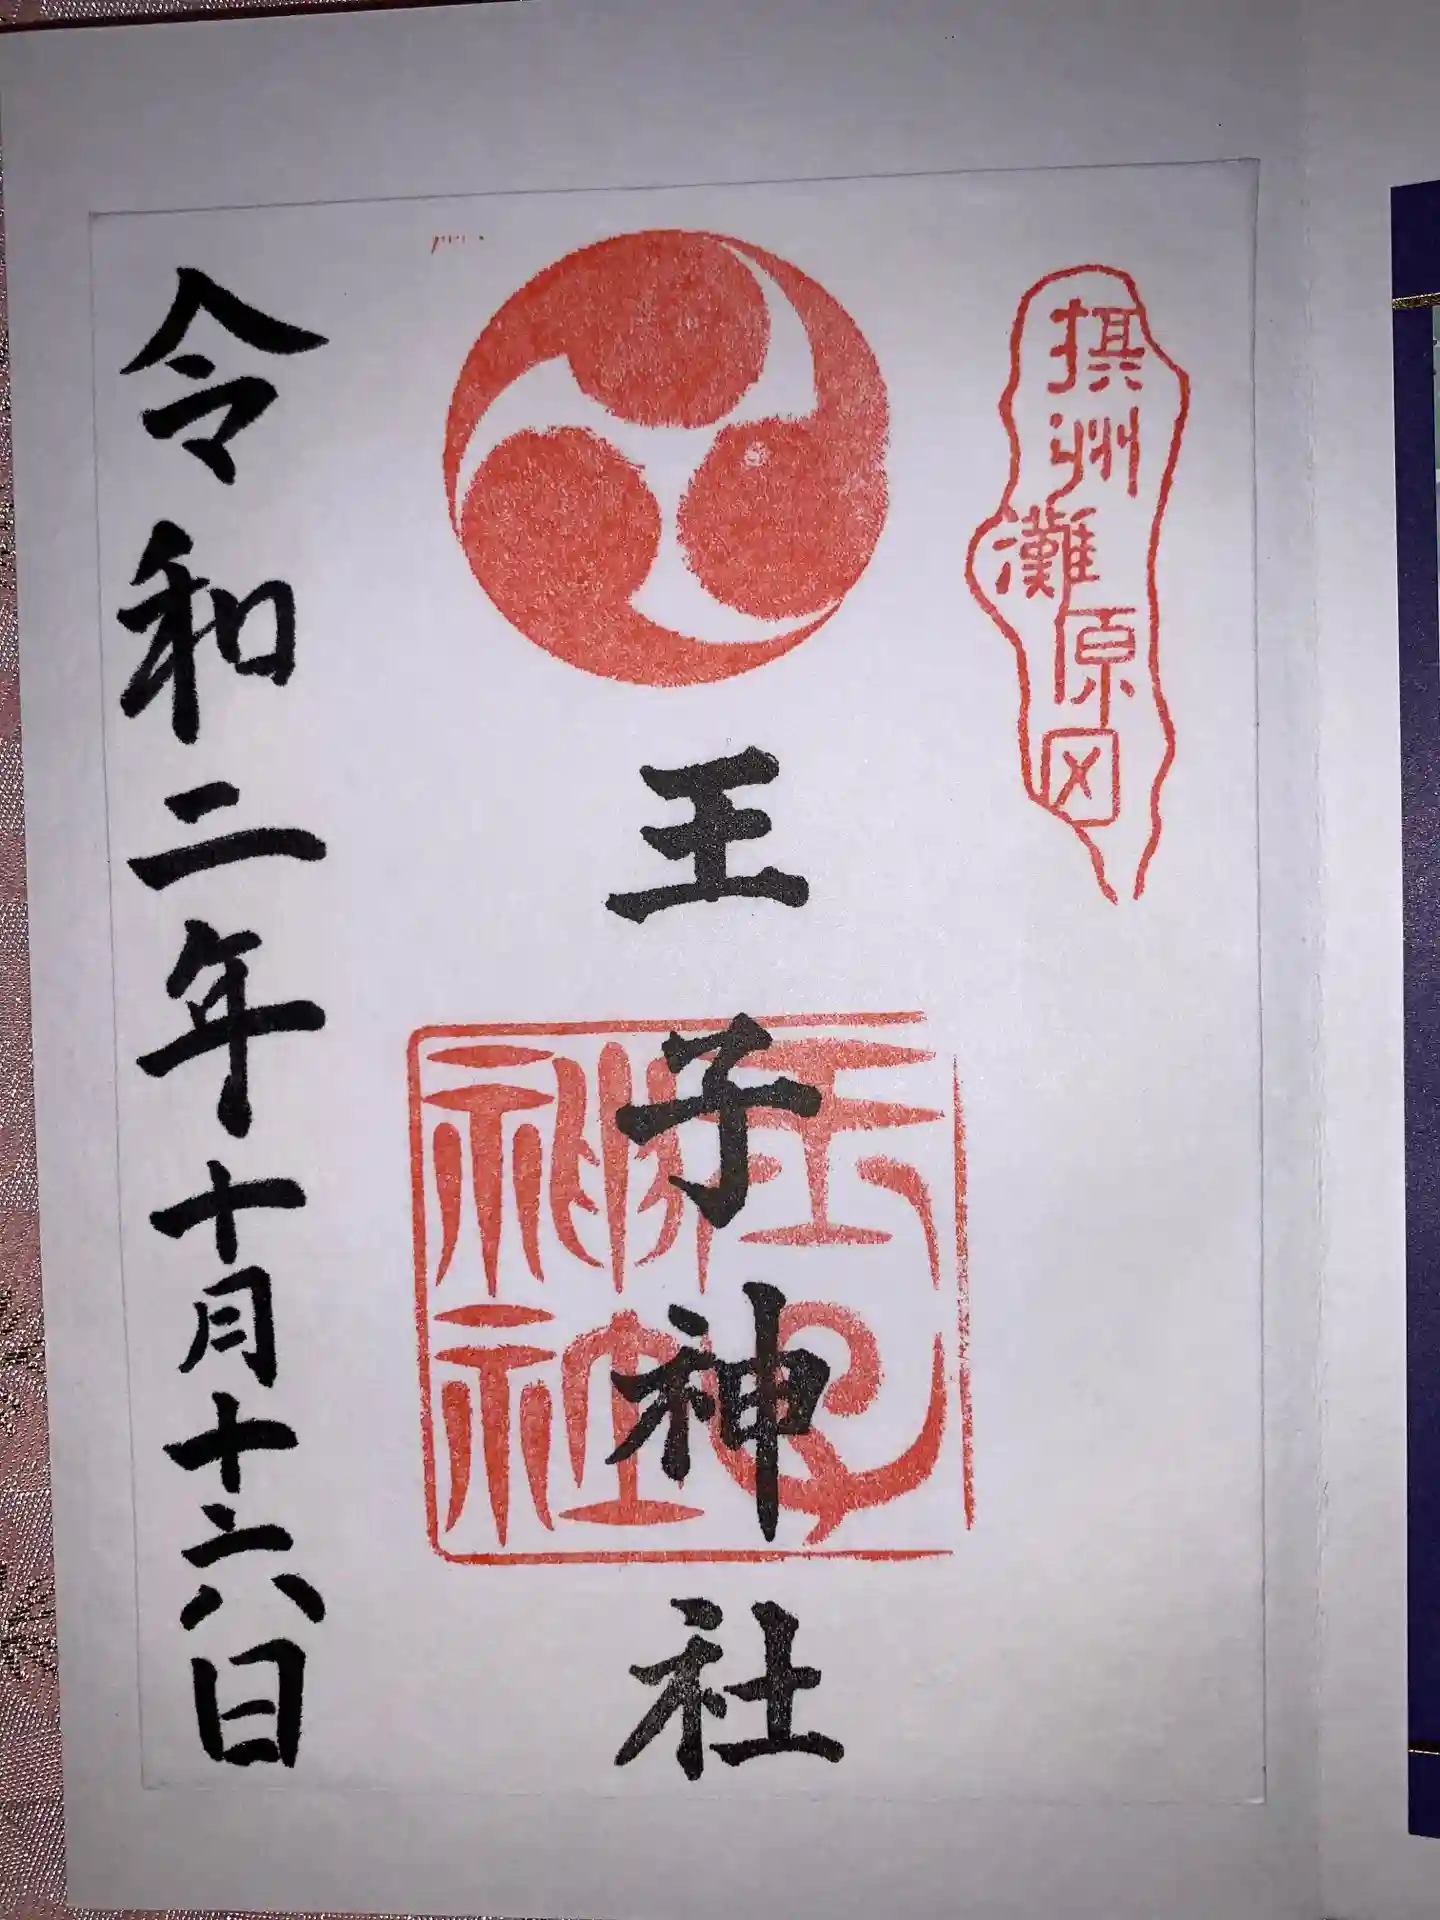 摂州灘原田
王子神社
王子
神社
令和二年十月十六日